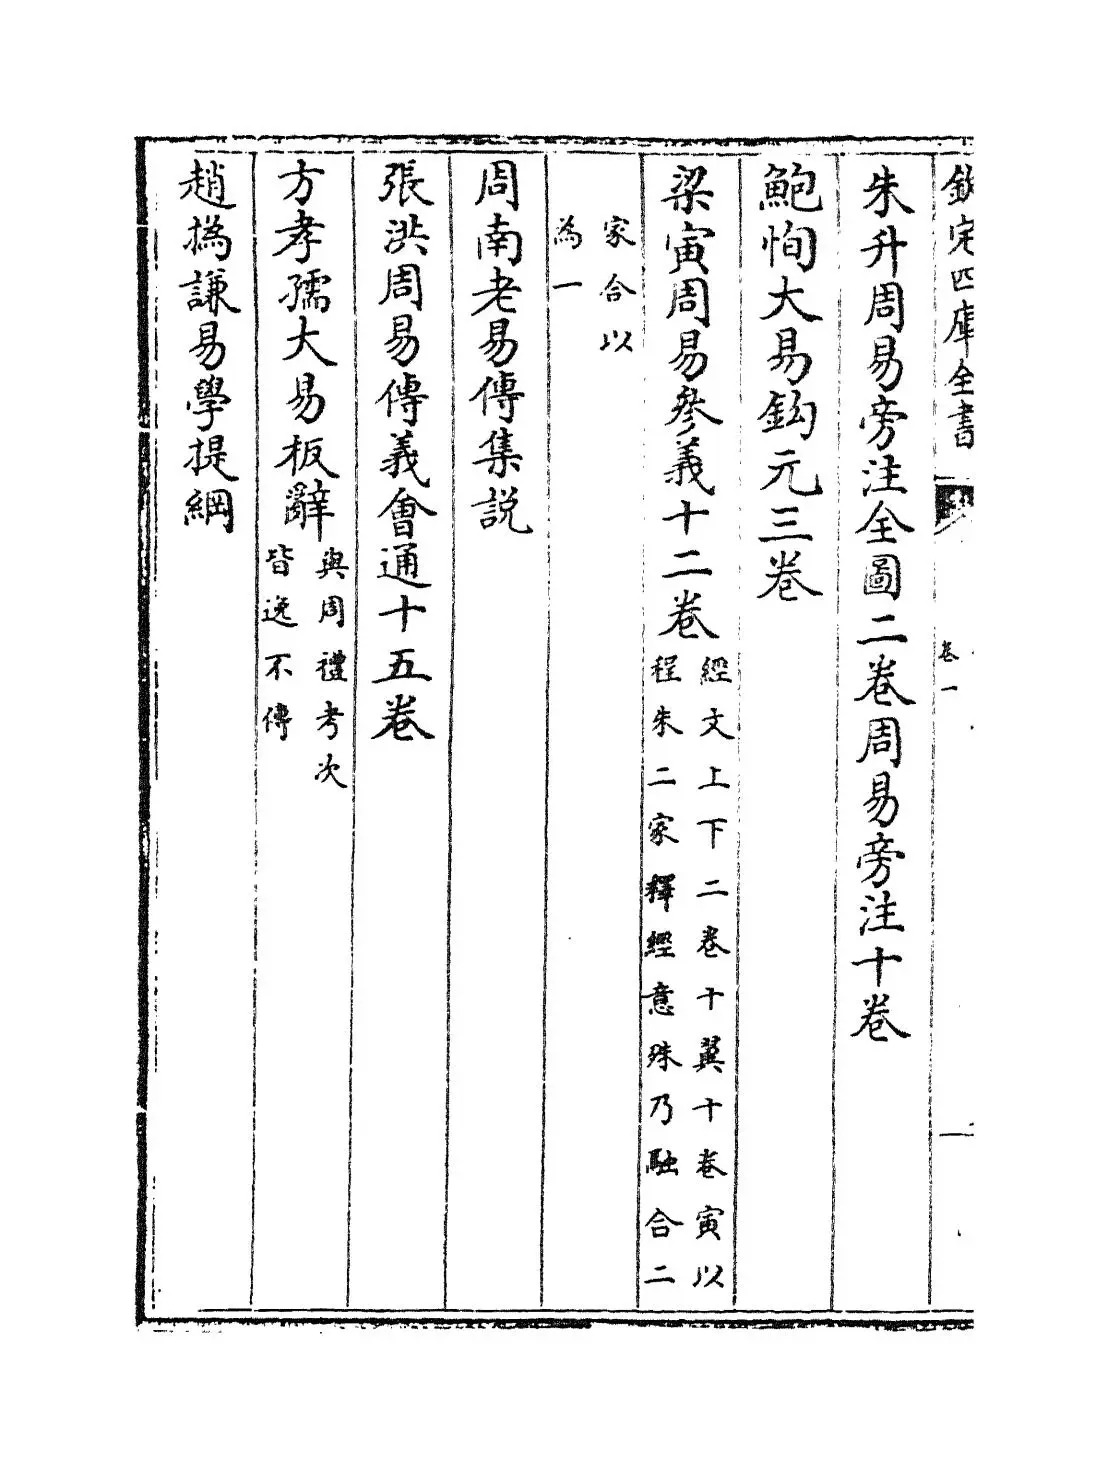 欽定四庫全書
卷一
朱升周易旁注全圖二卷周易旁注十卷
鮑恂大易鈎元三卷
梁寅周易參義十二卷
經文上下二卷十翼十卷寅以
程朱二家釋經意殊乃融合二
家合以
為一
周南老易傳集説
張洪周易傳義會通十五卷
方孝孺大易板辭
與周禮考次
皆逸不傳
趙撝謙易學提綱